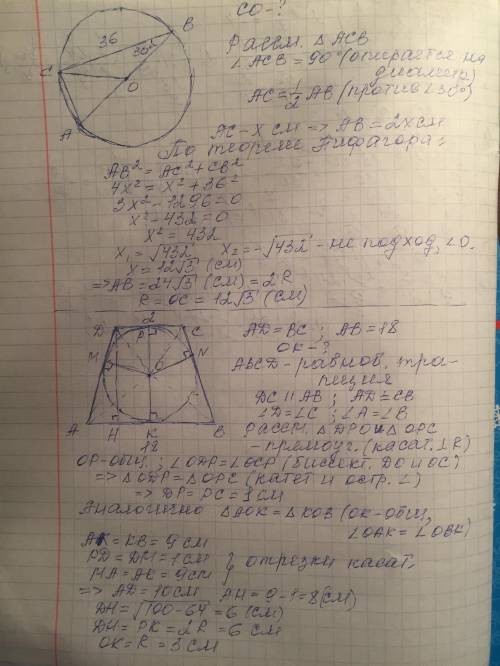 СО-?
B
36
30°
C
O
A
Рассм. △ACB
∠ACB = 90° (опирается на
диаметр)
AC = 1/2 AB (против ∠30°)
AC - x см => AB = 2x см
По теореме Пифагора:
AB² = AC² + CB²
4x² = x² + 36²
3x² - 1296 = 0
x² - 432 = 0
x² = 432
x₁ = √432  x₂ = -√432 - не подход, <0.
x = 12√3 (см)
=> AB = 24√3 (см) = 2R
R = OC = 12√3 (см)
2
D P C
M O N
A H K B
18
AD = BC ; AB = 18
OK - ?
ABCD - равноб. тра-
пеция
DC || AB ; AD = CB
∠D = ∠C ; ∠A = ∠B
Рассм. △DPO и △OPC
- прямоуг. (касат. ⊥ R)
OP - общ. ; ∠ODP = ∠OCP (биссект. DO и OC)
=> △ODP = △OPC (катет и остр. ∠)
=> DP = PC = 1 см
Аналогично △AOK = △KOB (OK - общ,
∠OAK = ∠OBK)
AK = KB = 9 см
PD = DM = 1 см } отрезки касат.
MA = AK = 9 см }
=> AD = 10 см  AH = 9 - 1 = 8 (см)
DH = √100 - 64 = 6 (см)
DH = PK = 2R = 6 см
OK = R = 3 см